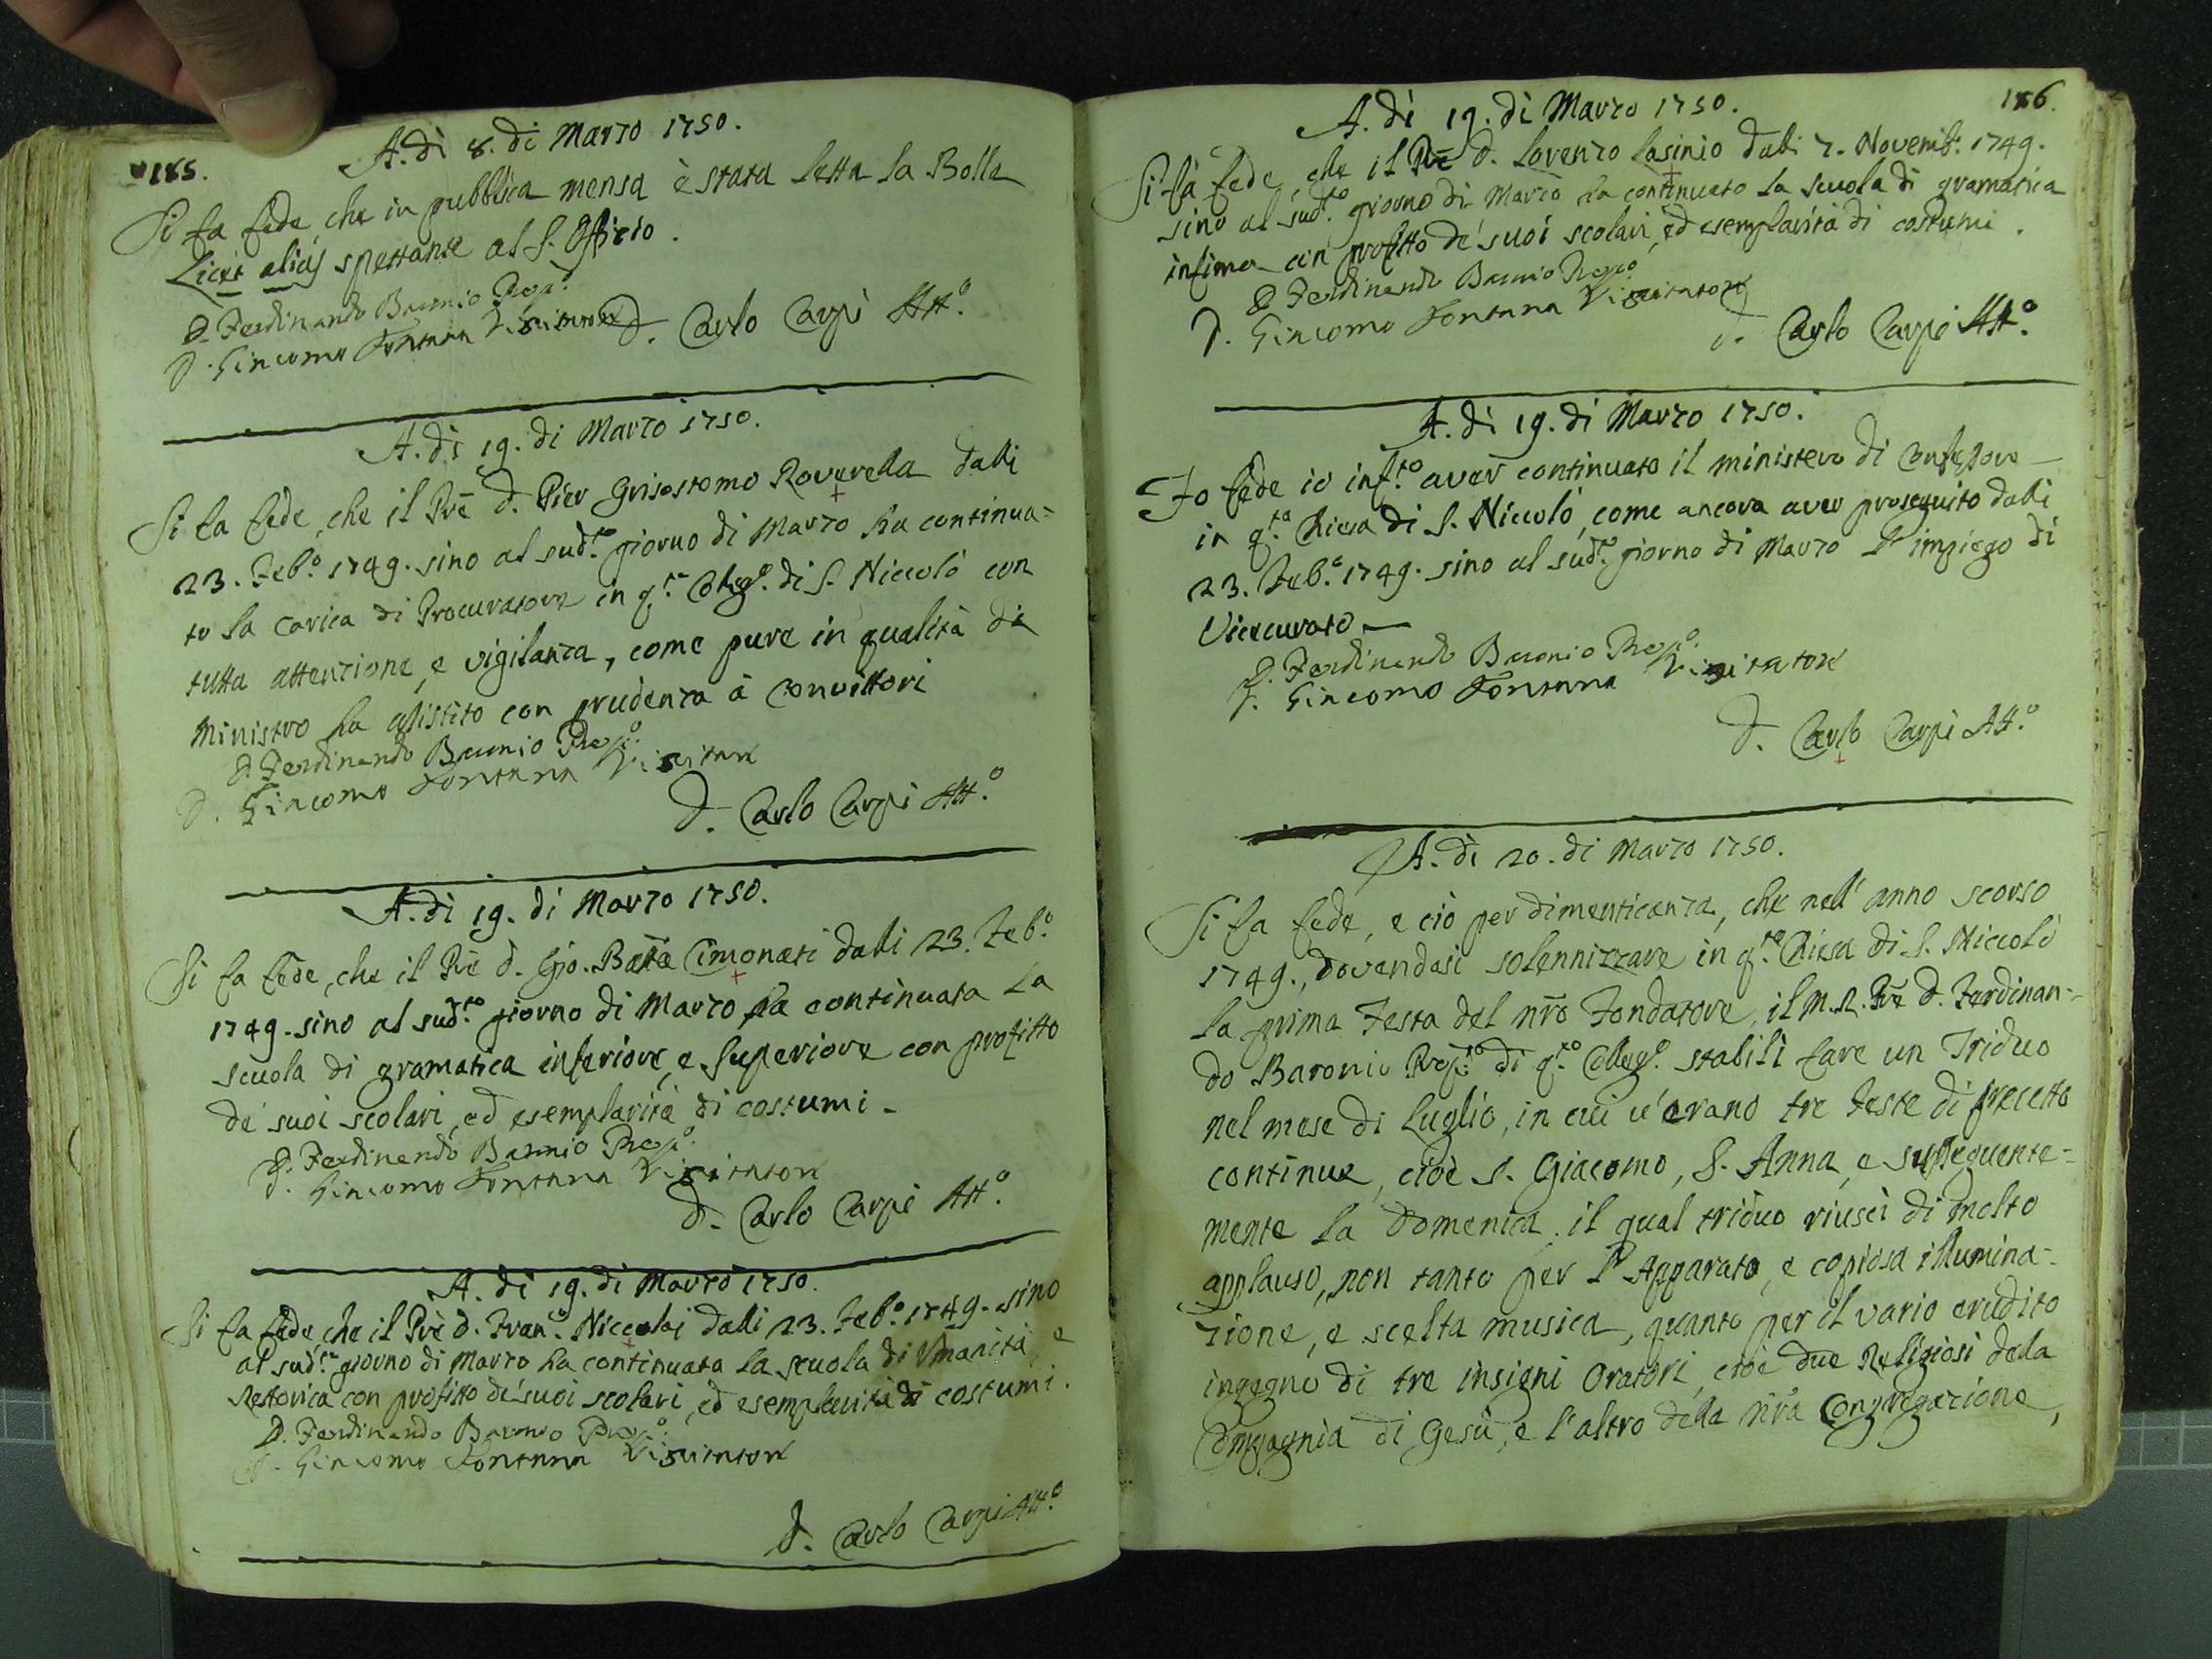 185.
A. dì 8. di Marzo 1750.
Si fa fede che in pubblica mensa è stata letta la Bolla
Licet alias spettante al S. Offizio.
D. Ferdinando Baronio Prep.o
D. Giacomo Fontana Visitatore
D. Carlo Carpi Att.o
A. dì 19. di Marzo 1750.
Si fa fede, che il Prē D. Pier Grisostomo Roverella dalli
23. Feb.o 1749. sino al sud.to giorno di Marzo ha continua=
to la carica di Procuratore in q.to Colleg.o di S. Niccolò con
tutta attenzione, e vigilanza, come pure in qualità di
Ministro ha assistito con prudenza à Convittori
D. Ferdinando Baronio Prep.o
D. Giacomo Fontana Visitatore
D. Carlo Carpi Att.o
A. dì 19. di Marzo 1750.
Si fa fede, che il Prē D. Gio. Batta Cimonati dalli 23. Feb.o
1749. sino al sud.to giorno di Marzo ha continuata la
scuola di gramatica inferiore, e superiore con profitto
de' suoi scolari, ed esemplarità di costumi.
D. Ferdinando Baronio Prep.o
D. Giacomo Fontana Visitatore
D. Carlo Carpi Att.o
A. dì 19. di Marzo 1750.
Si fa fede, che il Prē D. Fran.o Niccolai dalli 23. Feb.o 1749. sino
al sud.to giorno di Marzo ha continuata la scuola di Umanità, e
Rettorica con profitto de' suoi scolari, ed esemplarità di costumi.
D. Ferdinando Baronio Prep.o
D. Giacomo Fontana Visitatore
D. Carlo Carpi Att.o
186.
A. dì 19. di Marzo 1750.
Si fa fede, che il Prē D. Lorenzo Lasinio dalli 7. Novemb. 1749.
sino al sud.to giorno di Marzo ha continuato la scuola di gramatica
infima con profitto de' suoi scolari, ed esemplarità di costumi.
D. Ferdinando Baronio Prep.o
D. Giacomo Fontana Visitatore
D. Carlo Carpi Att.o
A. dì 19. di Marzo 1750.
Fo fede io inf.to aver continuato il ministero di Confessore
in q.ta Chiesa di S. Niccolò, come ancora aver proseguito dalli
23. Feb.o 1749. sino al sud.to giorno di Marzo l'impiego di
Vicecurato
D. Ferdinando Baronio Prep.o
D. Giacomo Fontana Visitatore
D. Carlo Carpi Att.o
A. dì 20. di Marzo 1750.
Si fa fede, e ciò per dimenticanza, che nell'anno scorso
1749., dovendosi solennizzare in q.ta Chiesa di S. Niccolò
la prima Festa del nrō Fondatore, il M. R. Prē D. Ferdinan-
do Baronio Prep.to di q.to Colleg.o stabilì fare un Triduo
nel mese di Luglio, in cui v'erano tre Feste di precetto
continue, cioè S. Giacomo, S. Anna, e susseguente=
mente la Domenica, il qual triduo riuscì di molto
applauso, non tanto per l'Apparato, e copiosa illumina-
zione, e scelta musica, quanto per il vario erudito
ingegno di tre insigni Oratori, cioè due Religiosi della
Compagnia di Gesù, e l'altro della nrā Congregazione,